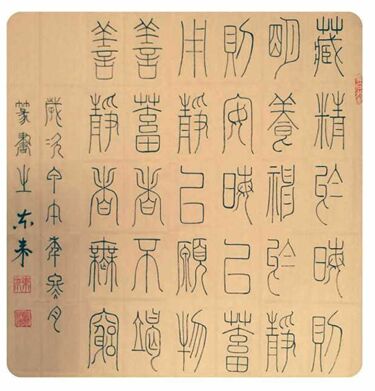 藏精於晦則
明養神於靜
則安晦以蓄
用靜以物
善蓄者不竭
善靜者無窮
歲次甲午年寒月
篆書之